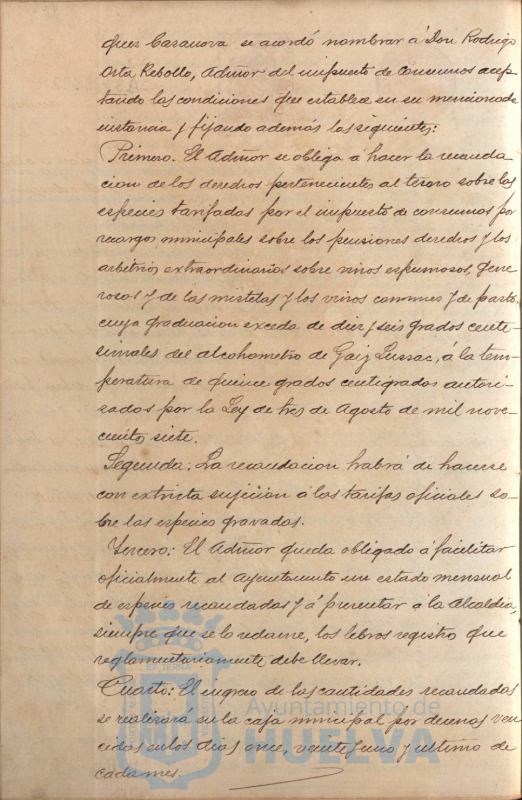 quez Casanova se acordó nombrar á Don Rodrigo
Orta Rebollo, Admor del impuesto de Consumos acep
tando las condiciones que establece en su mencionada
instancia y fijando además las siguientes:
Primero. El Admor se obliga á hacer la recauda
cion de los derechos pertenecientes al tesoro sobre las
especies tarifadas por el impuesto de consumos por
recargos municipales sobre los pensiones derechos y los
arbitrios extraordinarios sobre vinos espumosos, gene
rosos y de las mistelas y los vinos comunes y de pasto,
cuya graduacion exceda de diez y seis grados cente
simales del alcohometro de Gaiz Lussac, á la tem-
peratura de quince grados centigrados autori-
sados por la Ley de tres de Agosto de mil nove-
cientos siete.
Segunda: La recaudacion habrá de hacerse
con extricta sujeción á las tarifas oficiales so-
bre las especies gravadas.
Tercero: El Admor queda obligado á facilitar
oficialmente al Ayuntamiento un estado mensual
de especies recaudadas y á presentar á la Alcaldia,
siempre que se lo reclame, los libros registro que
reglamentariamente debe llevar.
Cuarto: El ingreso de las cantidades recaudadas
se realizará en la caja municipal por decenas ven
cidas en los dias once, veinte y uno y ultimo de
cada mes.
Ayuntamiento de
HUELVA